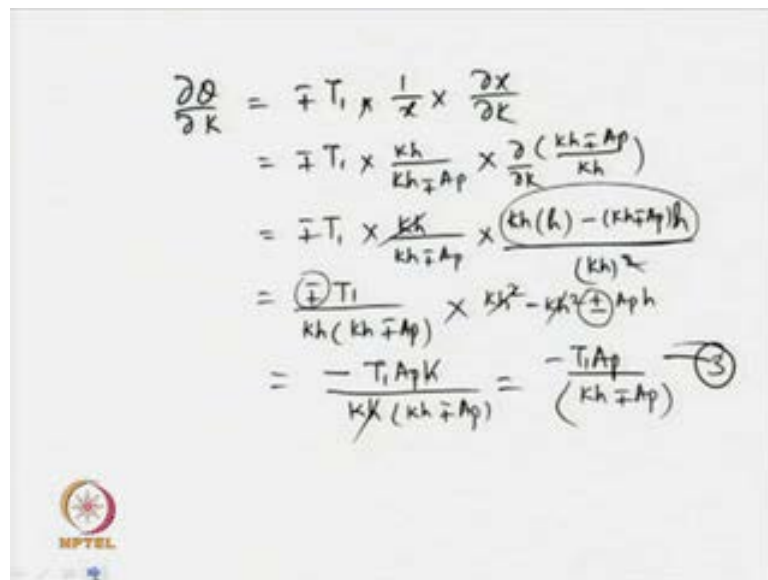 ∂θ/∂K = ∓ T₁ × 1/x × ∂x/∂K
= ∓ T₁ × Kh/(Kh ∓ Ap) × ∂/∂K (Kh ∓ Ap / Kh)
= ∓ T₁ × Kh/(Kh ∓ Ap) × (Kh(h) − (Kh ∓ Ap)h)/(Kh)²
= ∓ T₁/(Kh(Kh ∓ Ap)) × Kh² − Kh² ± Aph
= − T₁ApK/(KK(Kh ∓ Ap)) = −T₁Ap/(Kh ∓ Ap) — ③
NPTEL